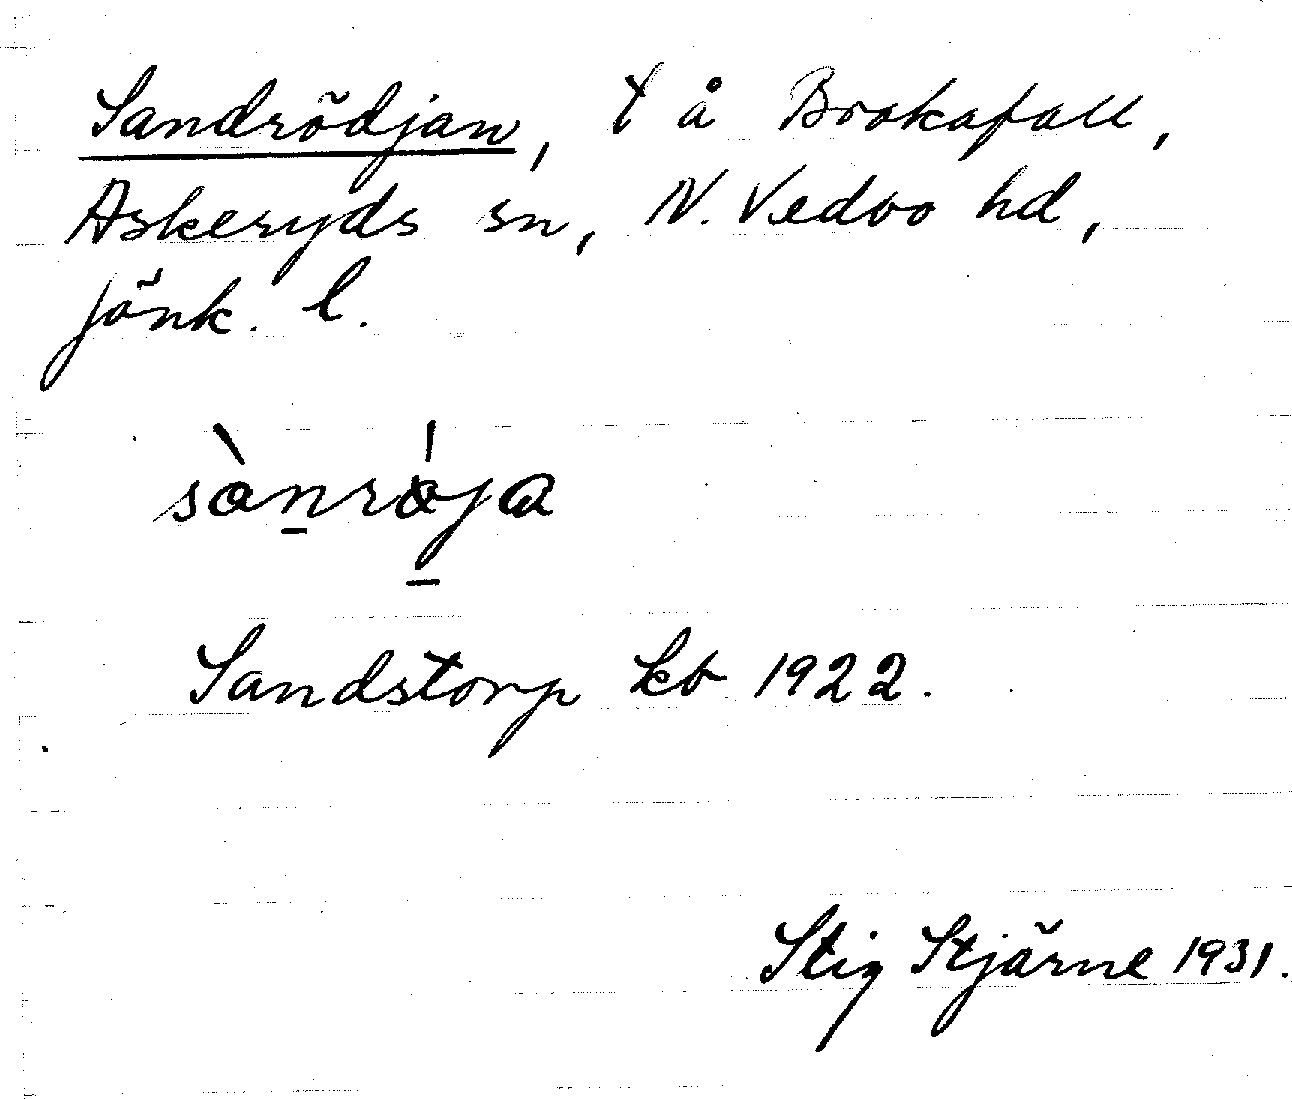 Sandrödjan, t å Brokafall,
Askeryds sn, N. Vedbo hd,
Jönk. l.
sànrǿja
Sandstorp kb 1922.
Stig Stjärne 1931.